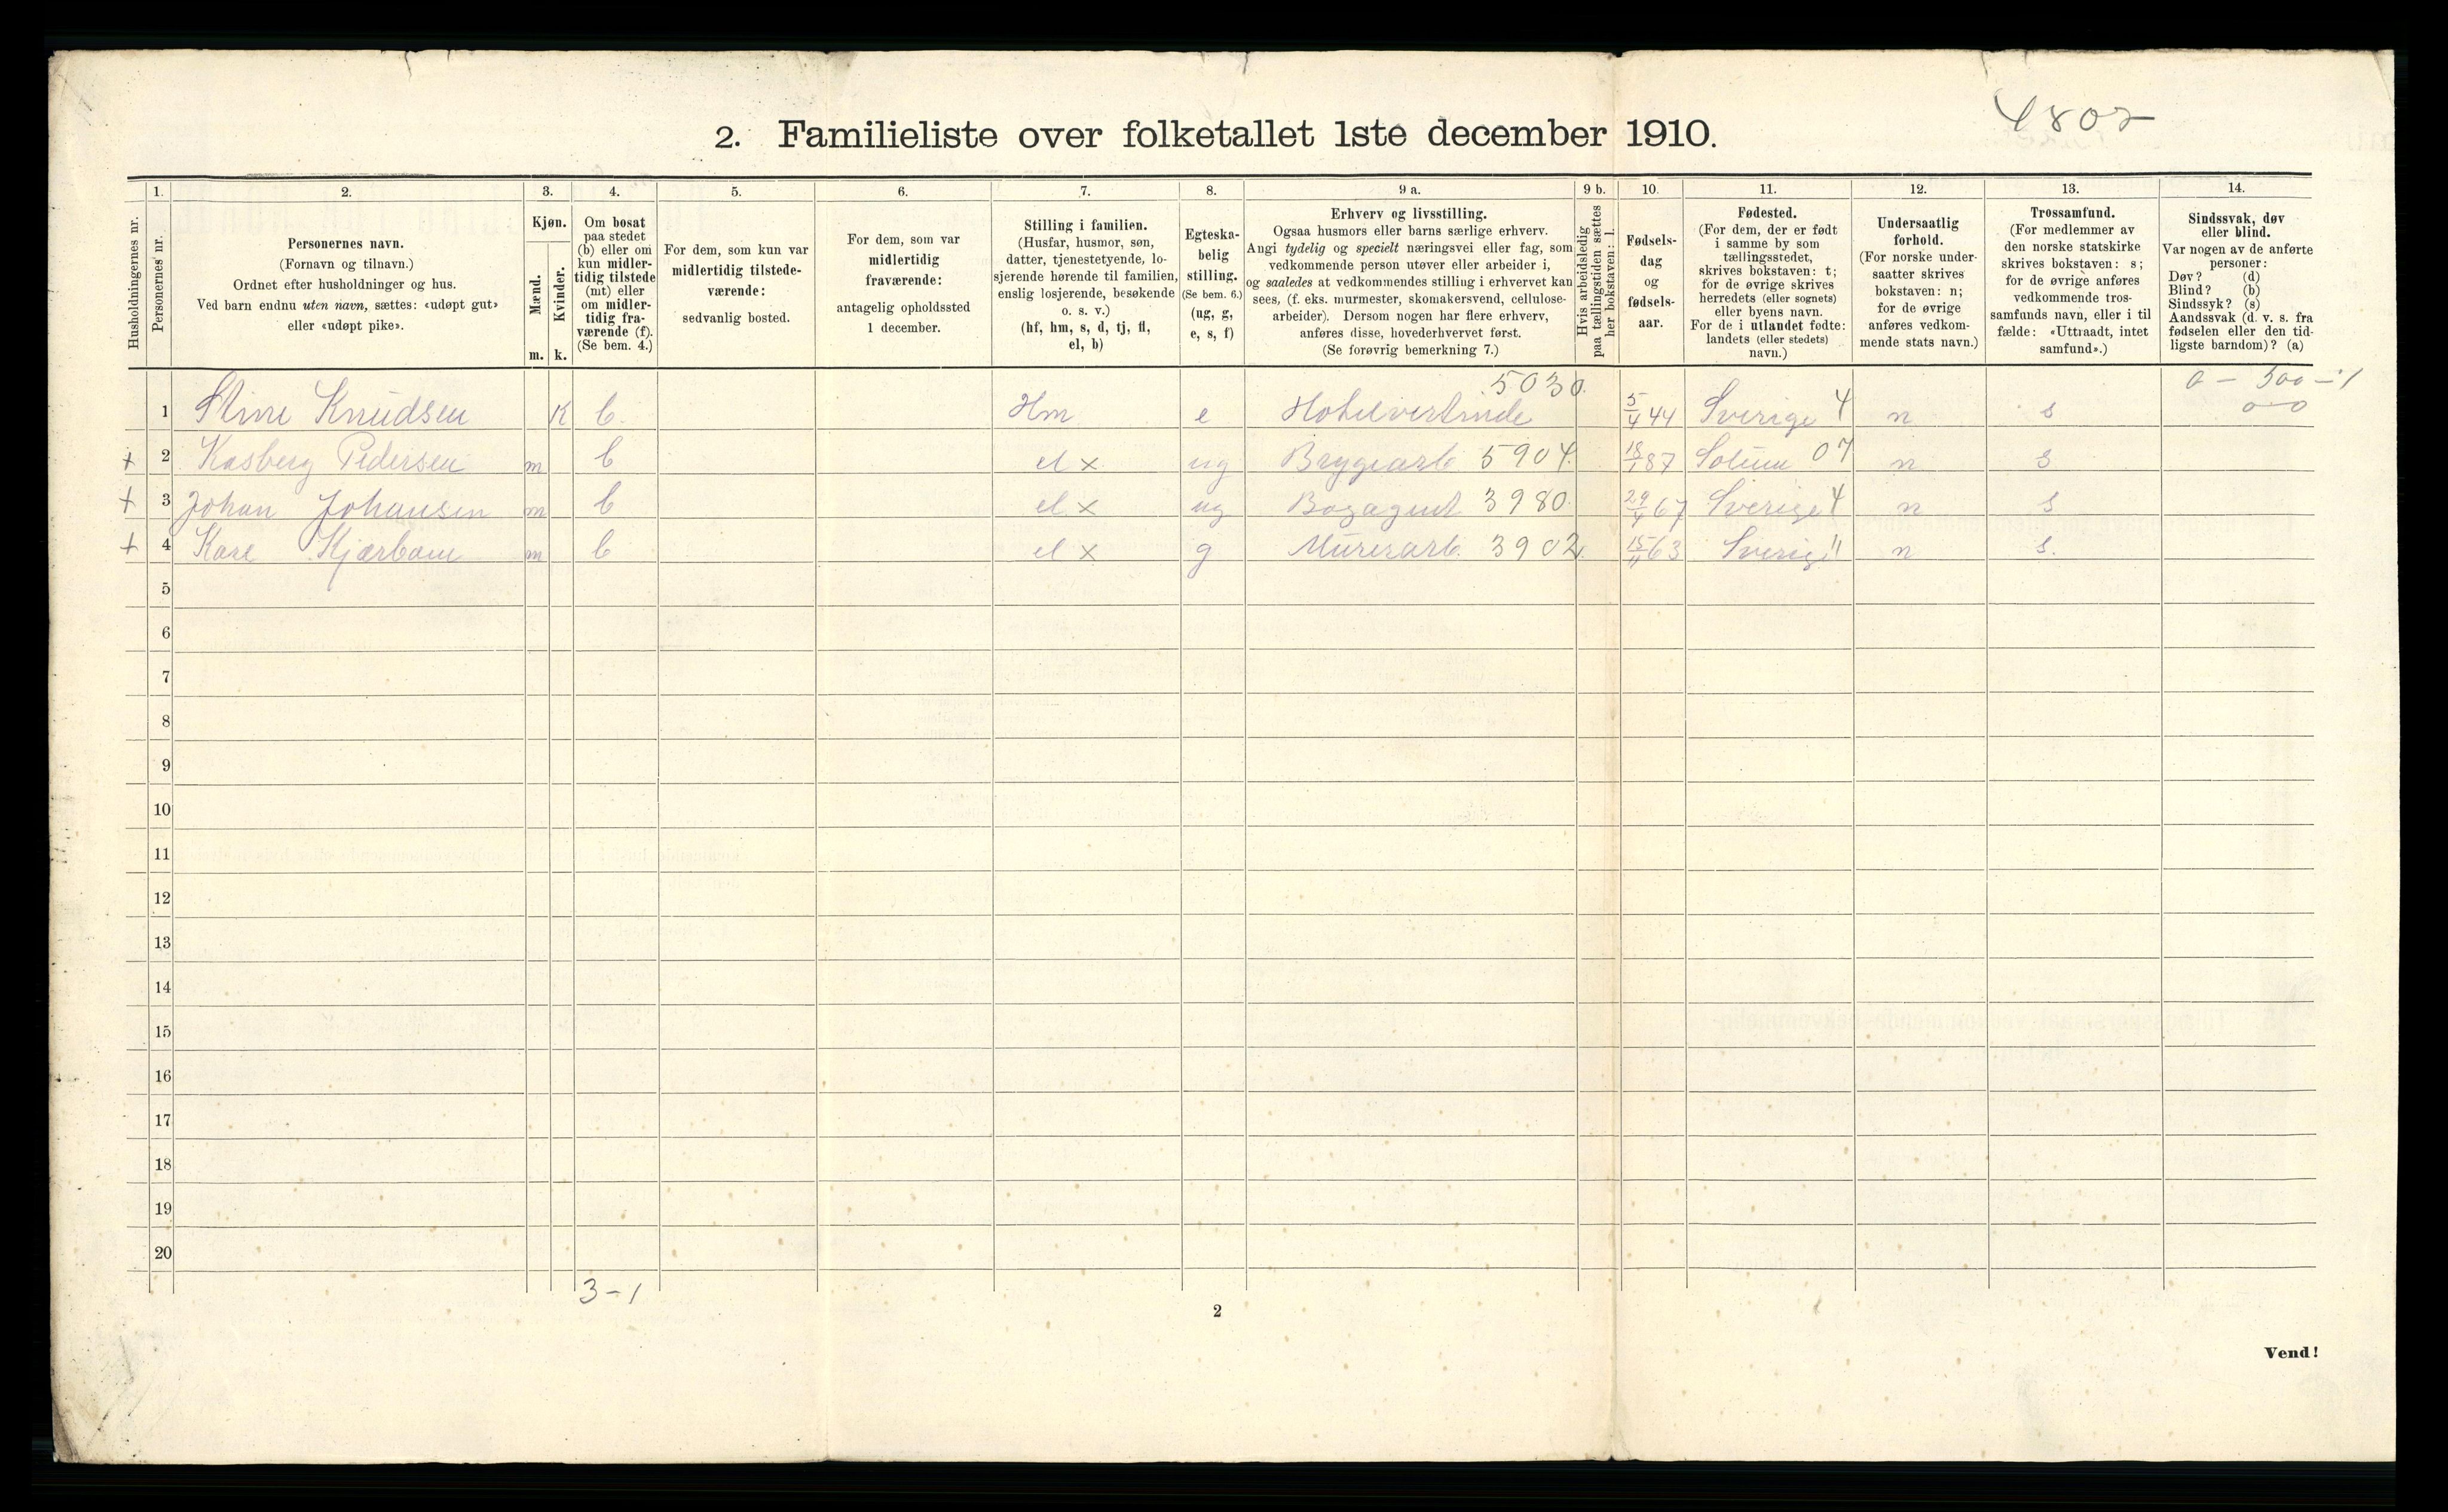 4802
2. Familieliste over folketallet 1ste december 1910.
Husholdningernes nr.
1.
Personernes nr.
2.
Personernes navn.
(Fornavn og tilnavn.)
Ordnet efter husholdninger og hus.
Ved barn endnu uten navn, sættes: «udøpt gut»
eller «udøpt pike».
3.
Kjøn.
Mænd.
m.
Kvinder.
k.
4.
Om bosat
paa stedet
(b) eller om
kun midler-
tidig tilstede
(mt) eller
om midler-
tidig fra-
værende (f).
(Se bem. 4.)
5.
For dem, som kun var
midlertidig tilstede-
værende:
sedvanlig bosted.
6.
For dem, som var
midlertidig
fraværende:
antagelig opholdssted
1 december.
7.
Stilling i familien.
(Husfar, husmor, søn,
datter, tjenestetyende, lo-
sjerende hørende til familien,
enslig losjerende, besøkende
o. s. v.)
(hf, hm, s, d, tj, fl,
el, b)
8.
Egteska-
belig
stilling.
(Se bem. 6.)
(ug, g,
e, s, f)
9 a.
Erhverv og livsstilling.
Ogsaa husmors eller barns særlige erhverv.
Angi tydelig og specielt næringsvei eller fag, som
vedkommende person utøver eller arbeider i,
og saaledes at vedkommendes stilling i erhvervet kan
sees, (f. eks. murmester, skomakersvend, cellulose-
arbeider). Dersom nogen har flere erhverv,
anføres disse, hovederhvervet først.
(Se forøvrig bemerkning 7.)
9 b.
Hvis arbeidsledig
paa tællingstiden sættes
her bokstaven: l.
10.
Fødsels-
dag
og
fødsels-
aar.
11.
Fødested.
(For dem, der er født
i samme by som
tællingsstedet,
skrives bokstaven: t;
for de øvrige skrives
herredets (eller sognets)
eller byens navn.
For de i utlandet fødte:
landets (eller stedets)
navn.)
12.
Undersaatlig
forhold.
(For norske under-
saatter skrives
bokstaven: n;
for de øvrige
anføres vedkom-
mende stats navn.)
13.
Trossamfund.
(For medlemmer av
den norske statskirke
skrives bokstaven: s;
for de øvrige anføres
vedkommende tros-
samfunds navn, eller i til
fælde: «Uttraadt, intet
samfund».)
14.
Sindssvak, døv
eller blind.
Var nogen av de anførte
personer:
Døv? (d)
Blind? (b)
Sindssyk? (s)
Aandssvak (d. v. s. fra
fødselen eller den tid-
ligste barndom)? (a)
5030. 0 - 300 - 1
1 Stine Knudsen K b. Hm e Hotelvertinde 5/4 44 Sverige 4 n s 0-0
+ 2 Kasberg Pedersen m b el x ug Brygearb 5904. 87 Solum 07 n s
+ 3 Johan Johansen m b el x ug Bogagent 3980. 29/4 67 Sverige 4 n s
+ 4 Karl m b el x g Murerarb. 3902. 15/11 63 Sverige " n s.
5
6
7
8
9
10
11
12
13
14
15
16
17
18
19
20
3-1
2
Vend!